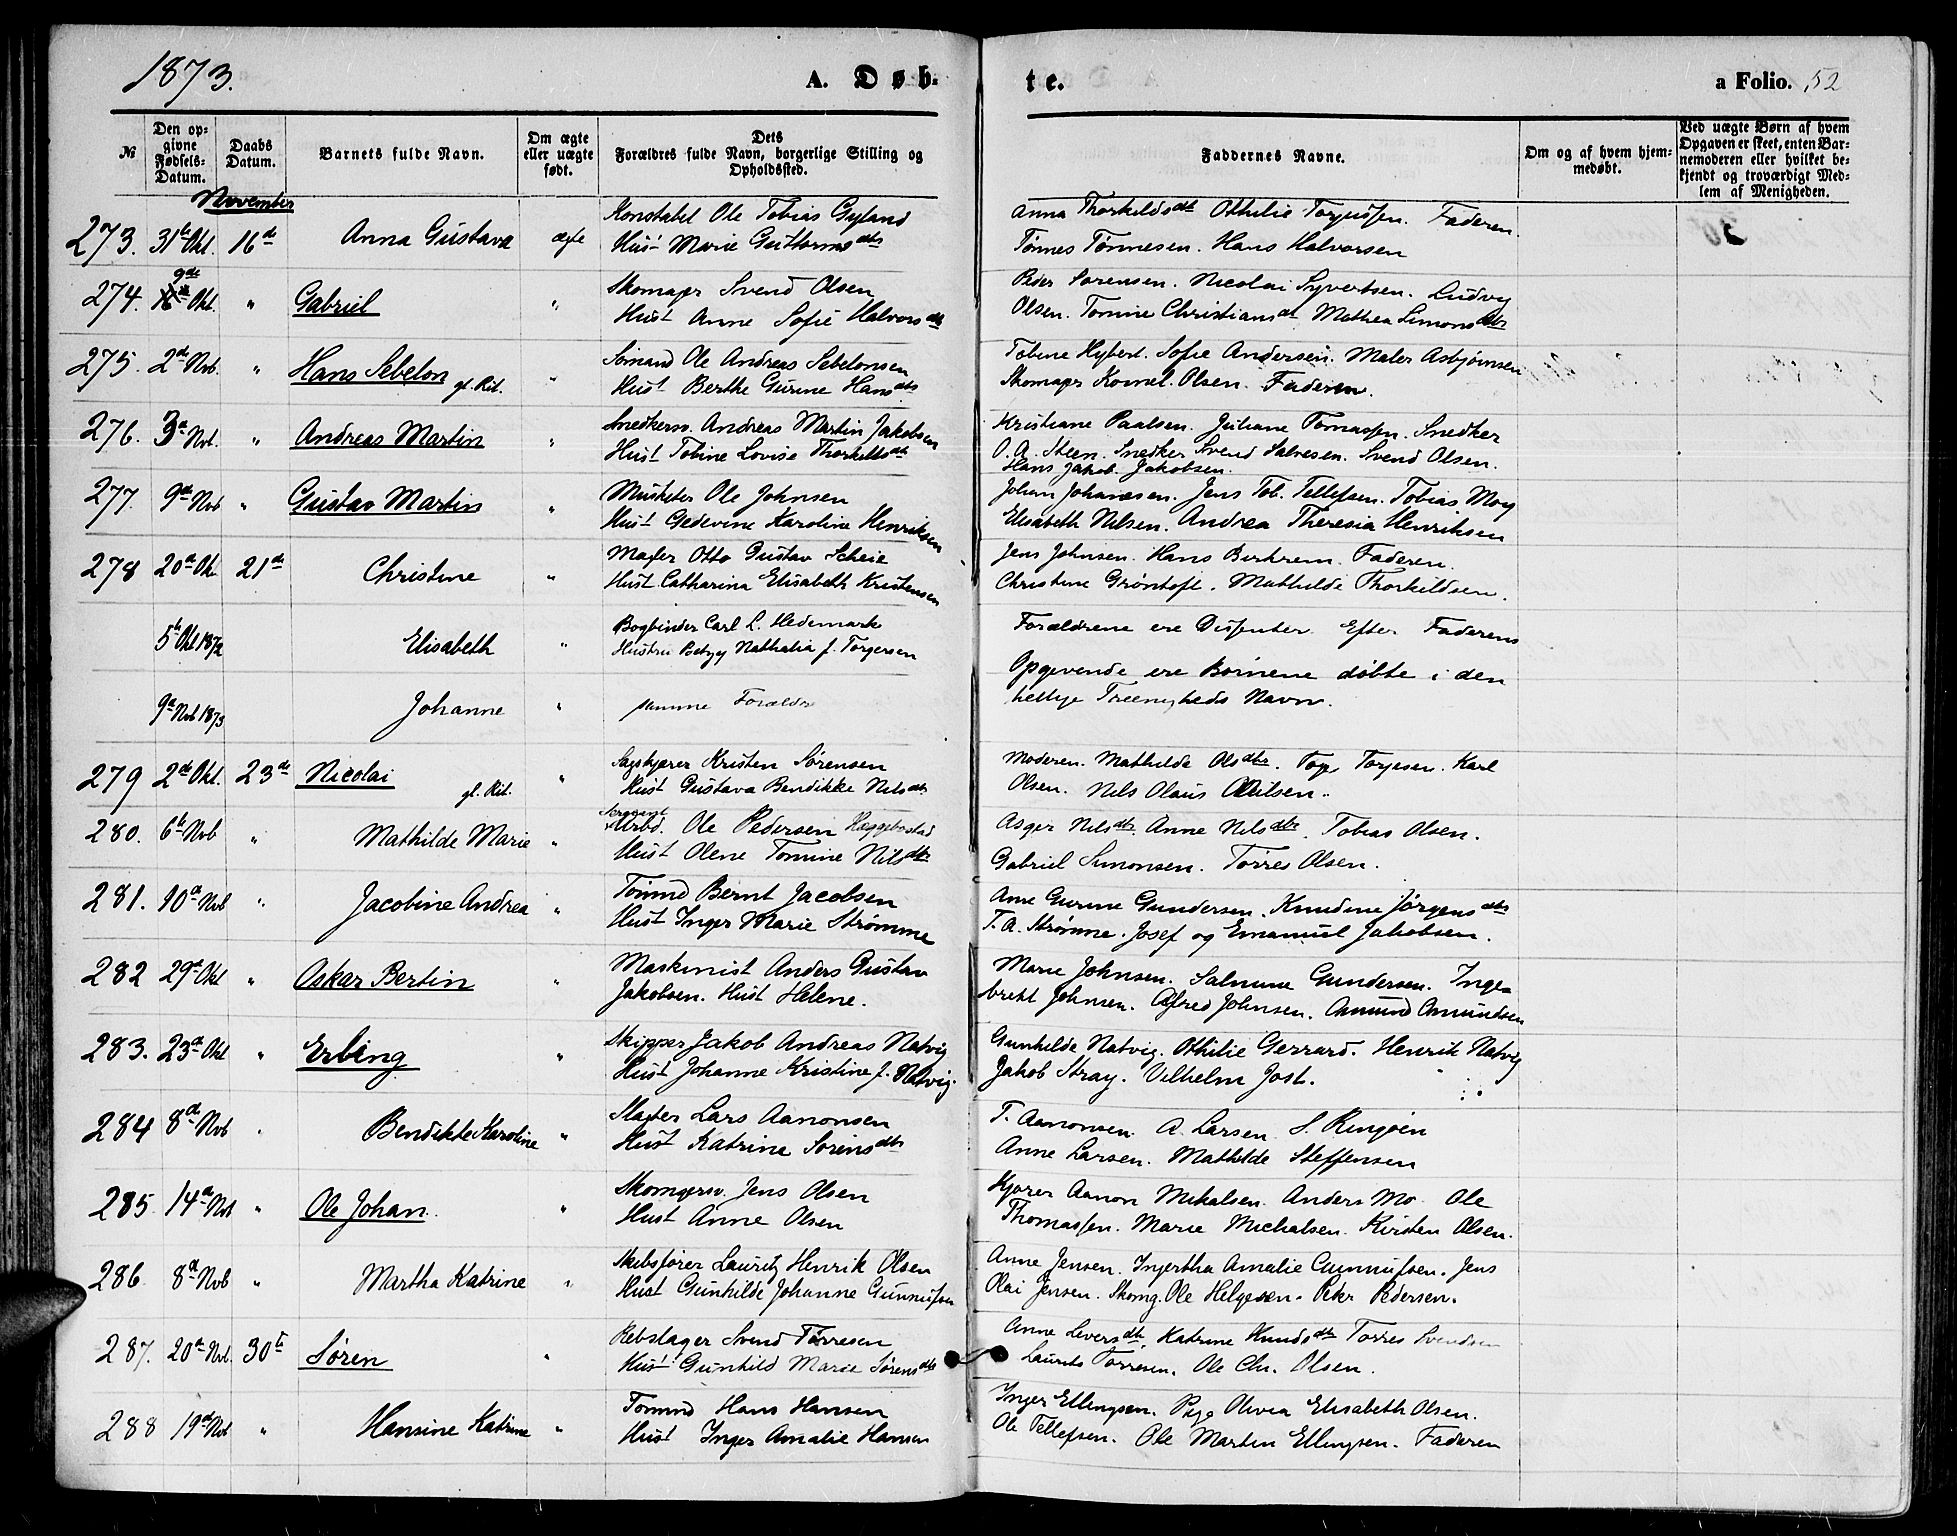 1873.
A. Døb-
te.
a Folio. 52
№
Den op-
givne
Fødsels-
Datum.
Daabs
Datum.
Barnets fulde Navn.
Om ægte
eller uægte
født.
Dets
Forældres fulde Navn, borgerlige Stilling og
Opholdssted.
Faddernes Navne.
Om og af hvem hjem-
medøbt.
Ved uægte Børn af hvem
Opgaven er skeet, enten Bar-
nemoderen eller hvilket be-
kjendt og troværdigt Med-
lem af Menigheden.
November
273. 31te Okt. 16de Anna Gustava ægte Konstabel Ole Tobias Gyland
Hust Marie Guttormsdtr
Anna Thorkildsdtr Othilie Torjussen. Faderen.
Tønnes Tønnesen. Hans Halvorsen
274. 9de Okt. " Gabriel " Skomagr Svend Olsen
Hust Anne Sofie Halvorsdtr
Peder Sørensen. Nicolai Syvertsen. Ludvig
Olsen. Tomine Christiansdt Mathea Simonsdtr
275. 2de Nvb. " Hans Sebelon gl. Rit. " Sømand Ole Andreas Sebelonsen
Hust Berthe Gurine Hansdtr
Tobine Hybert. Sofie Andersen. Maler Asbjørnsen
Skomagr Kornel. Olsen. Faderen.
276. 3de Nvb. " Andreas Martin " Snedkersv. Andreas Martin Jakobsen
Hust Tobine Lovise Thorkildsdtr
Kristiane Paalsen. Juliane Tomassen. Snedker
O. A. Steen. Snedker Svend Salvesen. Svend Olsen.
Hans Jakob Jakobsen.
277. 9de Nvb " Gustav Martin " Musketer Ole Johnsen
Hust Gedevine Karoline Henriksen
Johan Johansen. Jens Tob. Tellefsen. Tobias Moy
Elisabeth Nilsen. Andrea Theresia Henriksen
278 20de Okt 21de Christine " Magler Otto Gustav Scheie
Hust Catharina Elisabeth Kristensen
Jens Johnsen. Hans Berkrem. Faderen.
Christine Grøntoft. Mathilde Thorkildsen.
5te Okt 1872 Elisabeth " Bogbinder Carl L. Hedemark
Hustru Betzy Nathalia f. Torgersen
Forældrene ere Disenter. Efter Faderens
9de Nvb 1873 Johanne " samme Forældr
Opgevende ere Børnene døbte i den
hellige Treenigheds Navn.
279 2de Okt. 23de Nicolai gl. Rit. " Sagskjærer Kristen Sørensen
Hust Gustava Bendikke Nilsdtr
Moderen. Mathilde Olsdtr. Tarjesen. Karl
Olsen. Nils Olaus Nilsen.
280. 6te Nvb " Mathilde Marie " Sergeant
Arbd. Ole Pedersen Hæggebostad
Hust Olene Tomine Nilsdtr
Asger Nilsdtr. Anne Nilsdtr. Tobias Olsen.
Gabriel Simonsen. Tørres Olsen.
281. 10de Nvb " Jacobine Andrea " Tømmd Bernt Jacobsen
Hust Inger Marie Strømme
Ane Gurine Gundersen. Knudine Jørgensdtr
T. A. Strømme. Josef og Emanuel Jakobsen.
282 29de Okt " Oskar Bertin " Maskinist Anders Gustav
Jakobsen. Hust Helene.
Marie Johnsen. Salmine Gundersen. Inge-
brekt Johnsen. Alfred Johnsen. Amund Amundsen
283. 23de Okt " Erling " Skipper Jakob Andreas Natvig
Hust Johanne Kristine f. Natvig.
Gunhilde Natvig. Othilie Gerrard. Henrik Natvig
Jakob Stray. Vilhelm Jost.
284 8de Nvb " Bendikte Karoline " Slagter Lars Aanonsen
Hust Katrine Sørensdtr
T. Aanonsen A. Larsen. S. Ringøen
Anne Larsen. Mathilde Steffensen
285 14de Nvb " Ole Johan. " Skomgrsv. Jens Olsen
Hust Anne Olsen
Kjører Aanon Mikalsen. Anders Mo. Ole
Thomassen. Marie Michalsen. Kirsten Olsen.
286 8de Nvb " Martha Katrine " Skibsfører Lauritz Henrik Olsen
Hust Gunhilde Johanne Gunnufsen
Anne Jensen. Ingertha Amalie Gunnufsen. Jens
Olai Jensen. Skomg. Ole Helgesen. Peter Pedersen.
287. 20de Nvb. 30te Søren " Rebslager Svend Tørresen
Hust Gunhild Marie Sørensdtr
Anne Leversdtr. Katrine Knudsdtr Tørres Svendsen
Laurits Tørresen. Ole Chr. Olsen.
288 19de Nvb " Hansine Katrine " Tømmd Hans Hansen
Hust Inger Amalie Hansen
Inger Ellingsen. Pige Olivia Elisabeth Olsen.
Ole Tellefsen. Ole Martin Ellingsen. Faderen